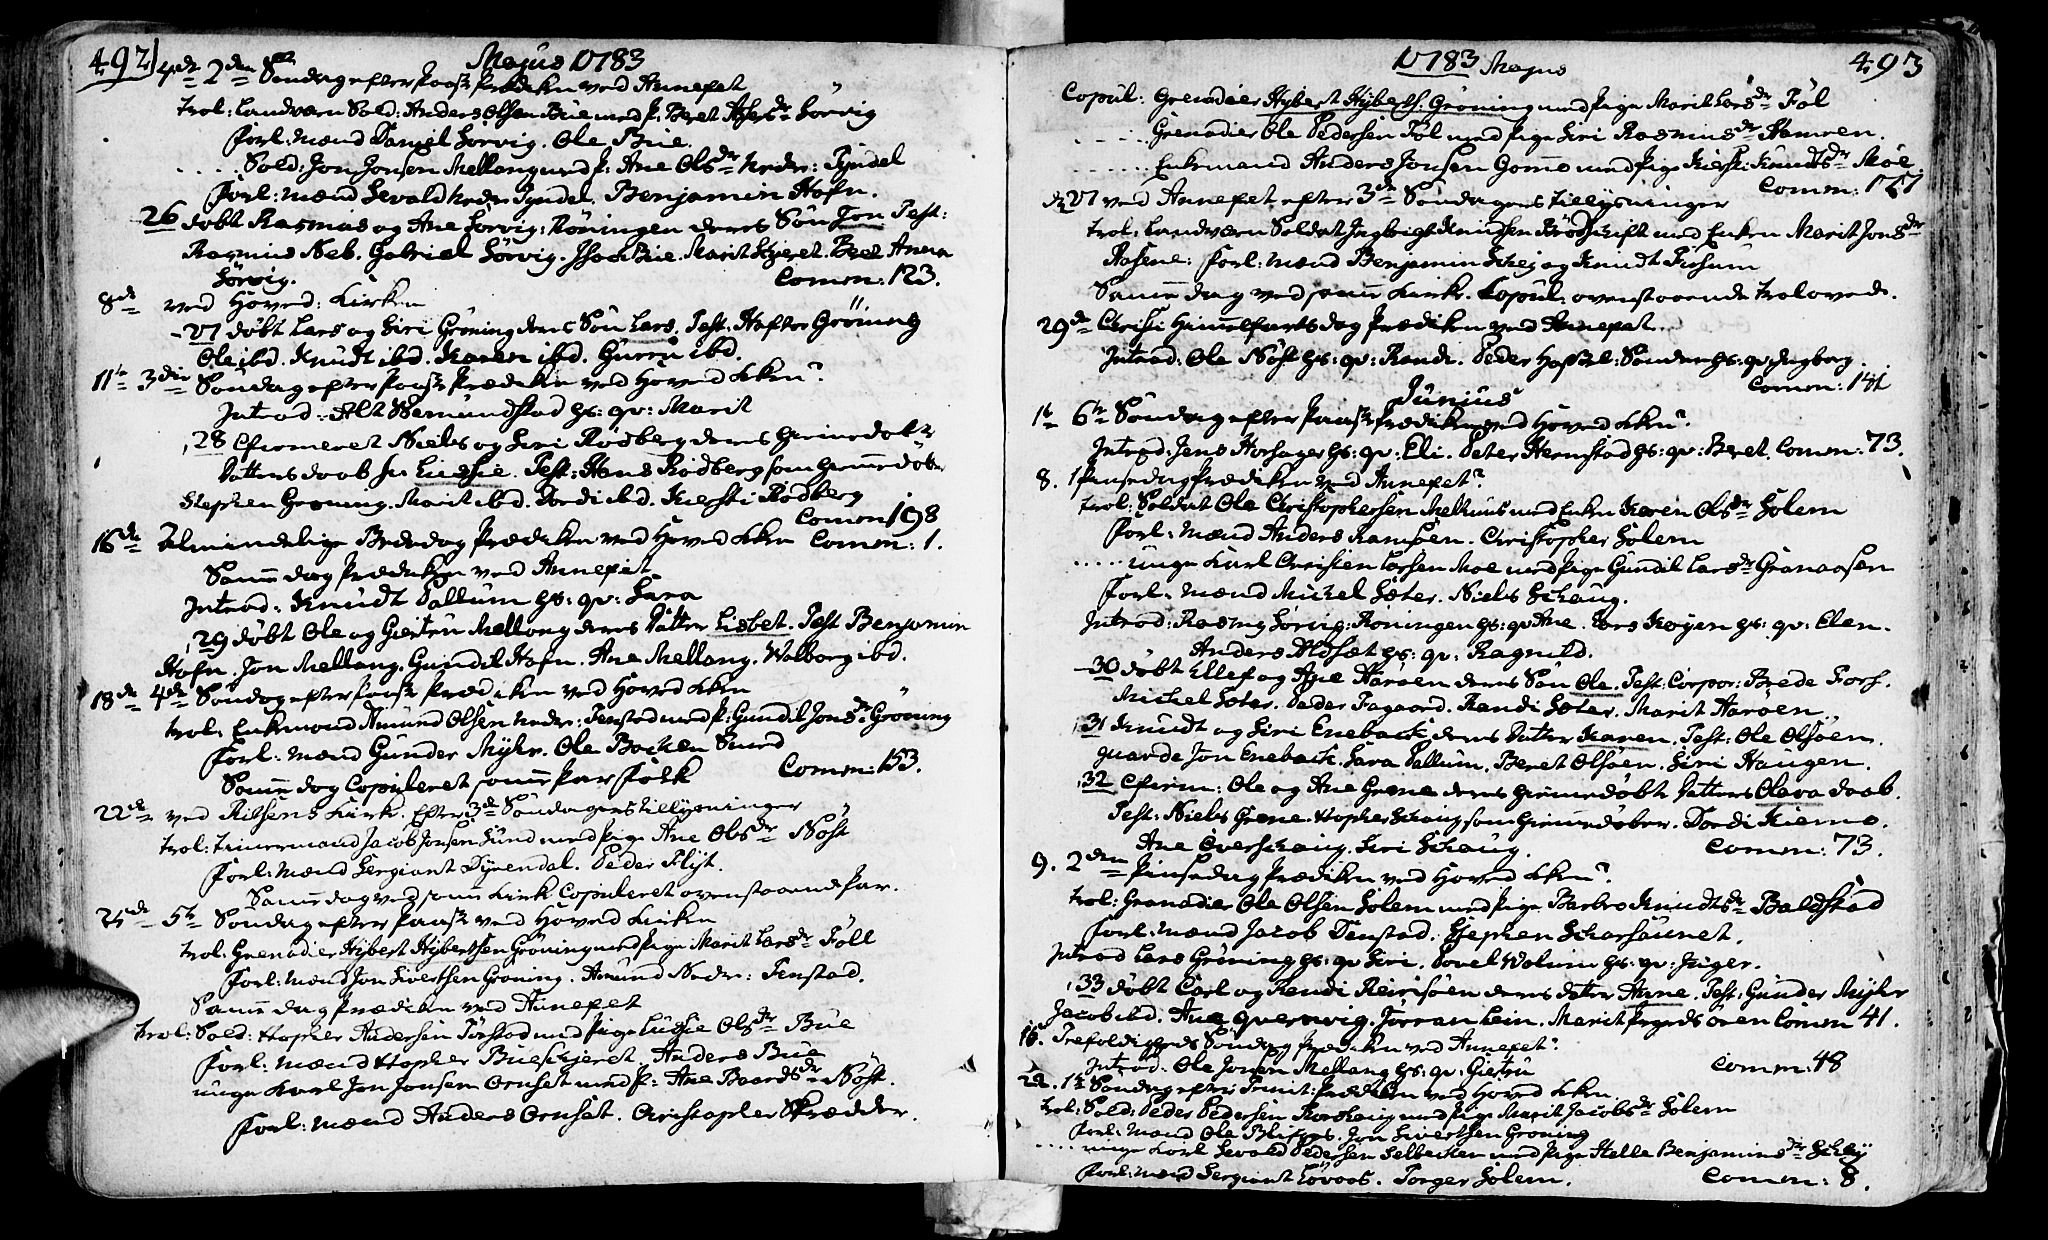 492
Majus 1783
4de 2den Søndag efter Paask Prædiken ved Annexet
trol: Landværn Sold: Anders Olsen Bue med P: Beret Sørvig
Forl: Mænd Daniel Sørvig. Ole Bue.
..... Sold: Jon Jonsen Mellang med P: Ane Olsdr Nedr: Tyndel
Forl: Mænd Sevald Nedr Tyndel. Benjamin Hofn.
26 døbt Rasmus og Ane Sørvig: Røningen deres Søn Jon Test:
Rasmus Neb. Gabriel Sørvig. Bue. Marit Anna
Sørvig. Comm: 123.
8de ved Hoved: Kirken
27 døbt Lars og Siri Grøning deres Søn Lars. Test: Grøning
Ole ibd. Knudt ibd. Karen ibd. Gurru ibd.
11te 3die Søndag efter Paask Prædiken ved Hoved Kken
Introd: Semundstad hs: qv: Marit
28 Cfirmeret Niels og Siri Rødberg deres
Datters daab Test: Hans Rødberg som
Stephen Grøning. Marit ibd. Dordi ibd. Kiersti Rødberg
Comm 198
16de Almindelige Bededag Prædiken ved Hoved Kken Comm: 1.
Samme dag Prædiken ved Annexet
Introd: Knudt Pallum hs: qv: Sara
29 døbt Ole og Giertru Mellang deres Datter Lisbet. Test Benjamin
Hofn. Jon Mellang. Gundil Hofn. Ane Mellang. Walborg ibd.
18de 4de Søndag efter Paask Prædiken ved Hoved Kken
trol: Enkemand Amund Olsen Nedr: Tenstad med P: Gundil Jonsdr Grøning
Forl: Mænd Gunder Myhr. Ole Bocken Sund
Samme dag Copuleret samme Par Folk Comm: 153.
22de ved Rissens Kirk. Efter 3de Søndagers tillysninger
trol: Jacob Jonsen Sund med Pige Ane Olsdr Nøst
Forl: Mænd Sergiant Dyrendal. Peder Flyt.
Samme dag ved samme Kirk Copuleret ovenstaaende Par.
25de 5te Søndag efter Paask ved Hoved Kirken
trol. Grenadier Hybert Hybertsen Grøning med Pige Marit Larsdr Føll
Forl: Mænd Jon Sivertsen Grøning. Amund Nedr: Tenstad.
Samme dag Prædiken ved Annexet
trol: Sold: Htopher Andersen med Pige Olsdr Bue
Forl: Mænd Htopher. Anders Bue
unge Karl Jon Jonsen Ornset med P: Ane Baardsdr Nøst.
Forl: Mænd Anders Ornset. Christopher Skrædder.
1783 Majus
493
Copul: Grenadier Hybert Hyberts: Grøning med Pige Marit Larsdr Føl
..... Grenadier Ole Pedersen Føl med Pige Siri Rasmusdr Hamren.
..... Enkemand Anders Jonsen med Pige Kierst: Knudtsdr Moe
Comm: 177
d 27 ved Annexet efter 3de Søndagers tillysninger
trol: Landværn Soldat Ingbrigt Knudsen Brødskift med Enken Marit Jonsdr
Aasene: Forl: Mænd Benjamin Schej og Knudt
Samme dag ved samme Kirk. Copul: ovenstaaende trolovede.
29de Christi Himmelfarts dag Prædiken ved Annexet
Introd: Ole Nøst hs: qv: Randi. Peder Hassel: Sander hs: qv. Ingborg
Comm: 141
Junius
1te 6te Søndag efter Paask Prædiken ved Hoved Kken
Introd: Jens Horsager hs: qv: Eli. Peter Hernstad hs: qv: Beret. Comm: 73.
8. 1 Pinsedag Prædiken ved Annexet
trol: Soldat Ole Christophersen Melhuus med Enken Karen Olsdr Solem
Forl: Mænd Anders Ramsøen. Christopher Solem
..... unge Karl Christen Larsen Moe med Pige Gundil Larsdr Granaasen
Forl: Mænd Mickel Sæter. Niels Schaug.
Introd: Rasmus Sørvig: Røningen hs: qv Ane. Lars Køyen hs: qv: Elen.
Anders Aldset hs: qv: Ragnild.
30 døbt Ellef og Ane Harøen deres Søn Ole. Test: Corpor: Brede Fors.
Mickel Sæter. Peder Fagaard. Randi Sæter. Marit Aarøen.
31 Knudt og Siri Eneback deres Datter Karen. Test: Ole Olsøen.
Jon Eneback. Sara Pallum. Beret Olsøen. Siri Haugen.
32 Cfirm: Ole og Ane Grene deres hiemedøbt Datters Olava daab.
Test: Niels Grene. Htopher Schaug som hiemedøber. Dordi Kiemo.
Ane Overschaug. Siri Schaug. Comm: 73.
9. 2den Pinsedag Prædiken ved Hoved Kken
trol: Grenadier Ole Olsen Solem med Pige Barbro Knudtsdr Baldstad
Forl: Mænd Jacob Tenstad. Stephen Scharsaunet.
Introd Lars Grøning hs: qv Siri. Povel Wolum hs: qv: Inger.
33 døbt Carl og Randi Reinsøen deres datter Anne. Test: Gunder Myhr
Jacob ibd. Ane Quernvig. Jørran Lein. Marit Comm 41.
15. Trefoldigheds Søndag Prædiken ved Annexet
Introd: Ole Jonsen Mellang hs: qv: Giertru Comm: 48
22. 1te Søndag efter Trinit: Prædiken ved Hoved Kken
trol: Sold: Peder Pedersen med Pige Marit Jacobsdr Solem
Forl: Mænd Ole. Jon Sivertsen Grøning
.... unge Karl Sevald Pedersen Selbecken med Pige Helle Benjaminsdr Schej
Forl: Mænd Sergiant Løvoos. Torger Solem. Comm: 8.